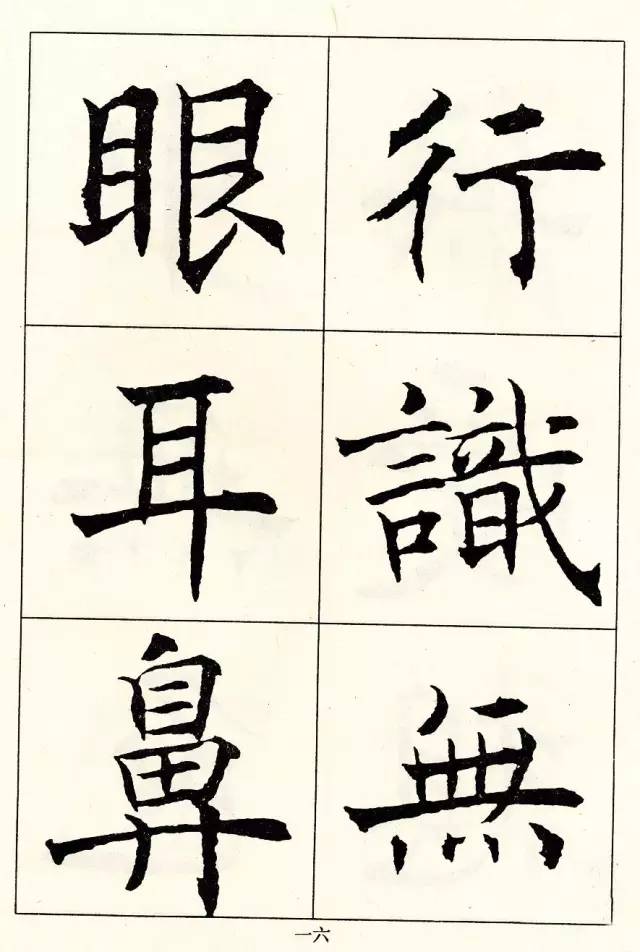 行識無
眼耳鼻
一六